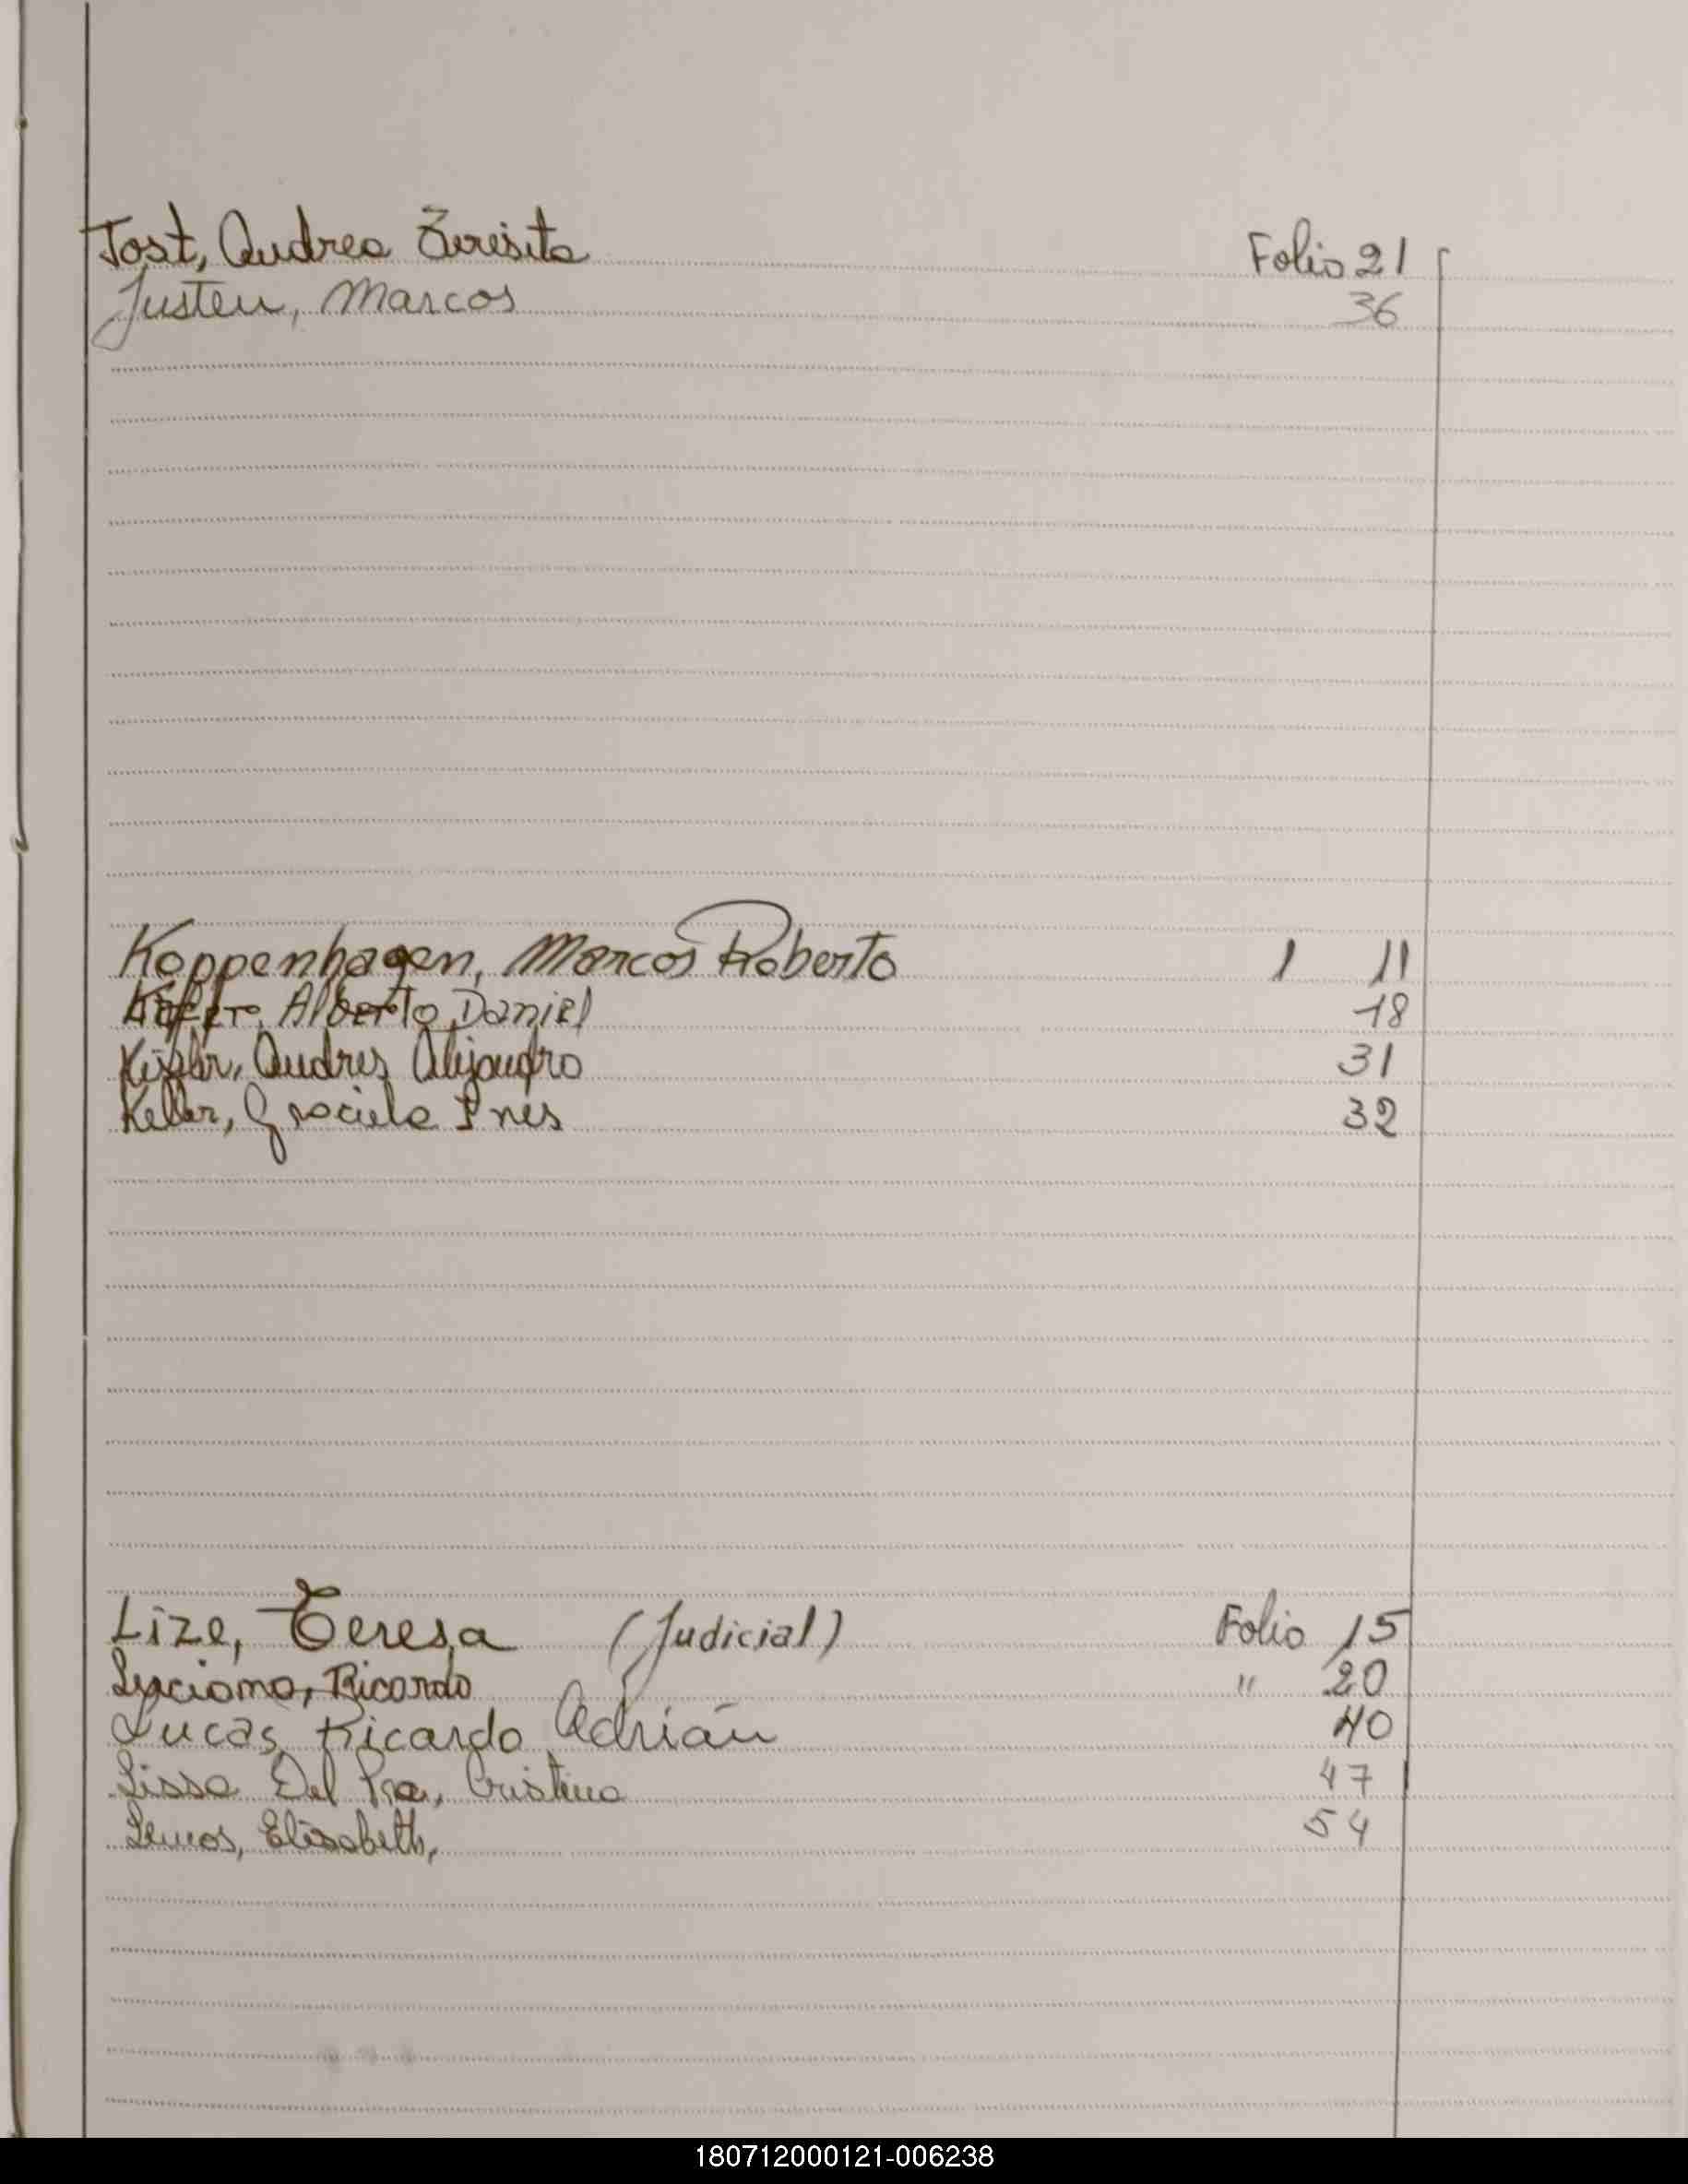 Jost, Andrea Teresita Folio 21
Justen, Marcos 36
Koppenhagen, Marcos Roberto 1 11
Alberto Daniel 18
Andres Alejandro 31
Keller, Graciela Ines 32
Lize, Teresa (Judicial) Folio 15
Ricardo " 20
Lucas, Ricardo Adrián 40
Del Pra, Cristina 47
Lemos, Elisabeth, 54
180712000121-006238